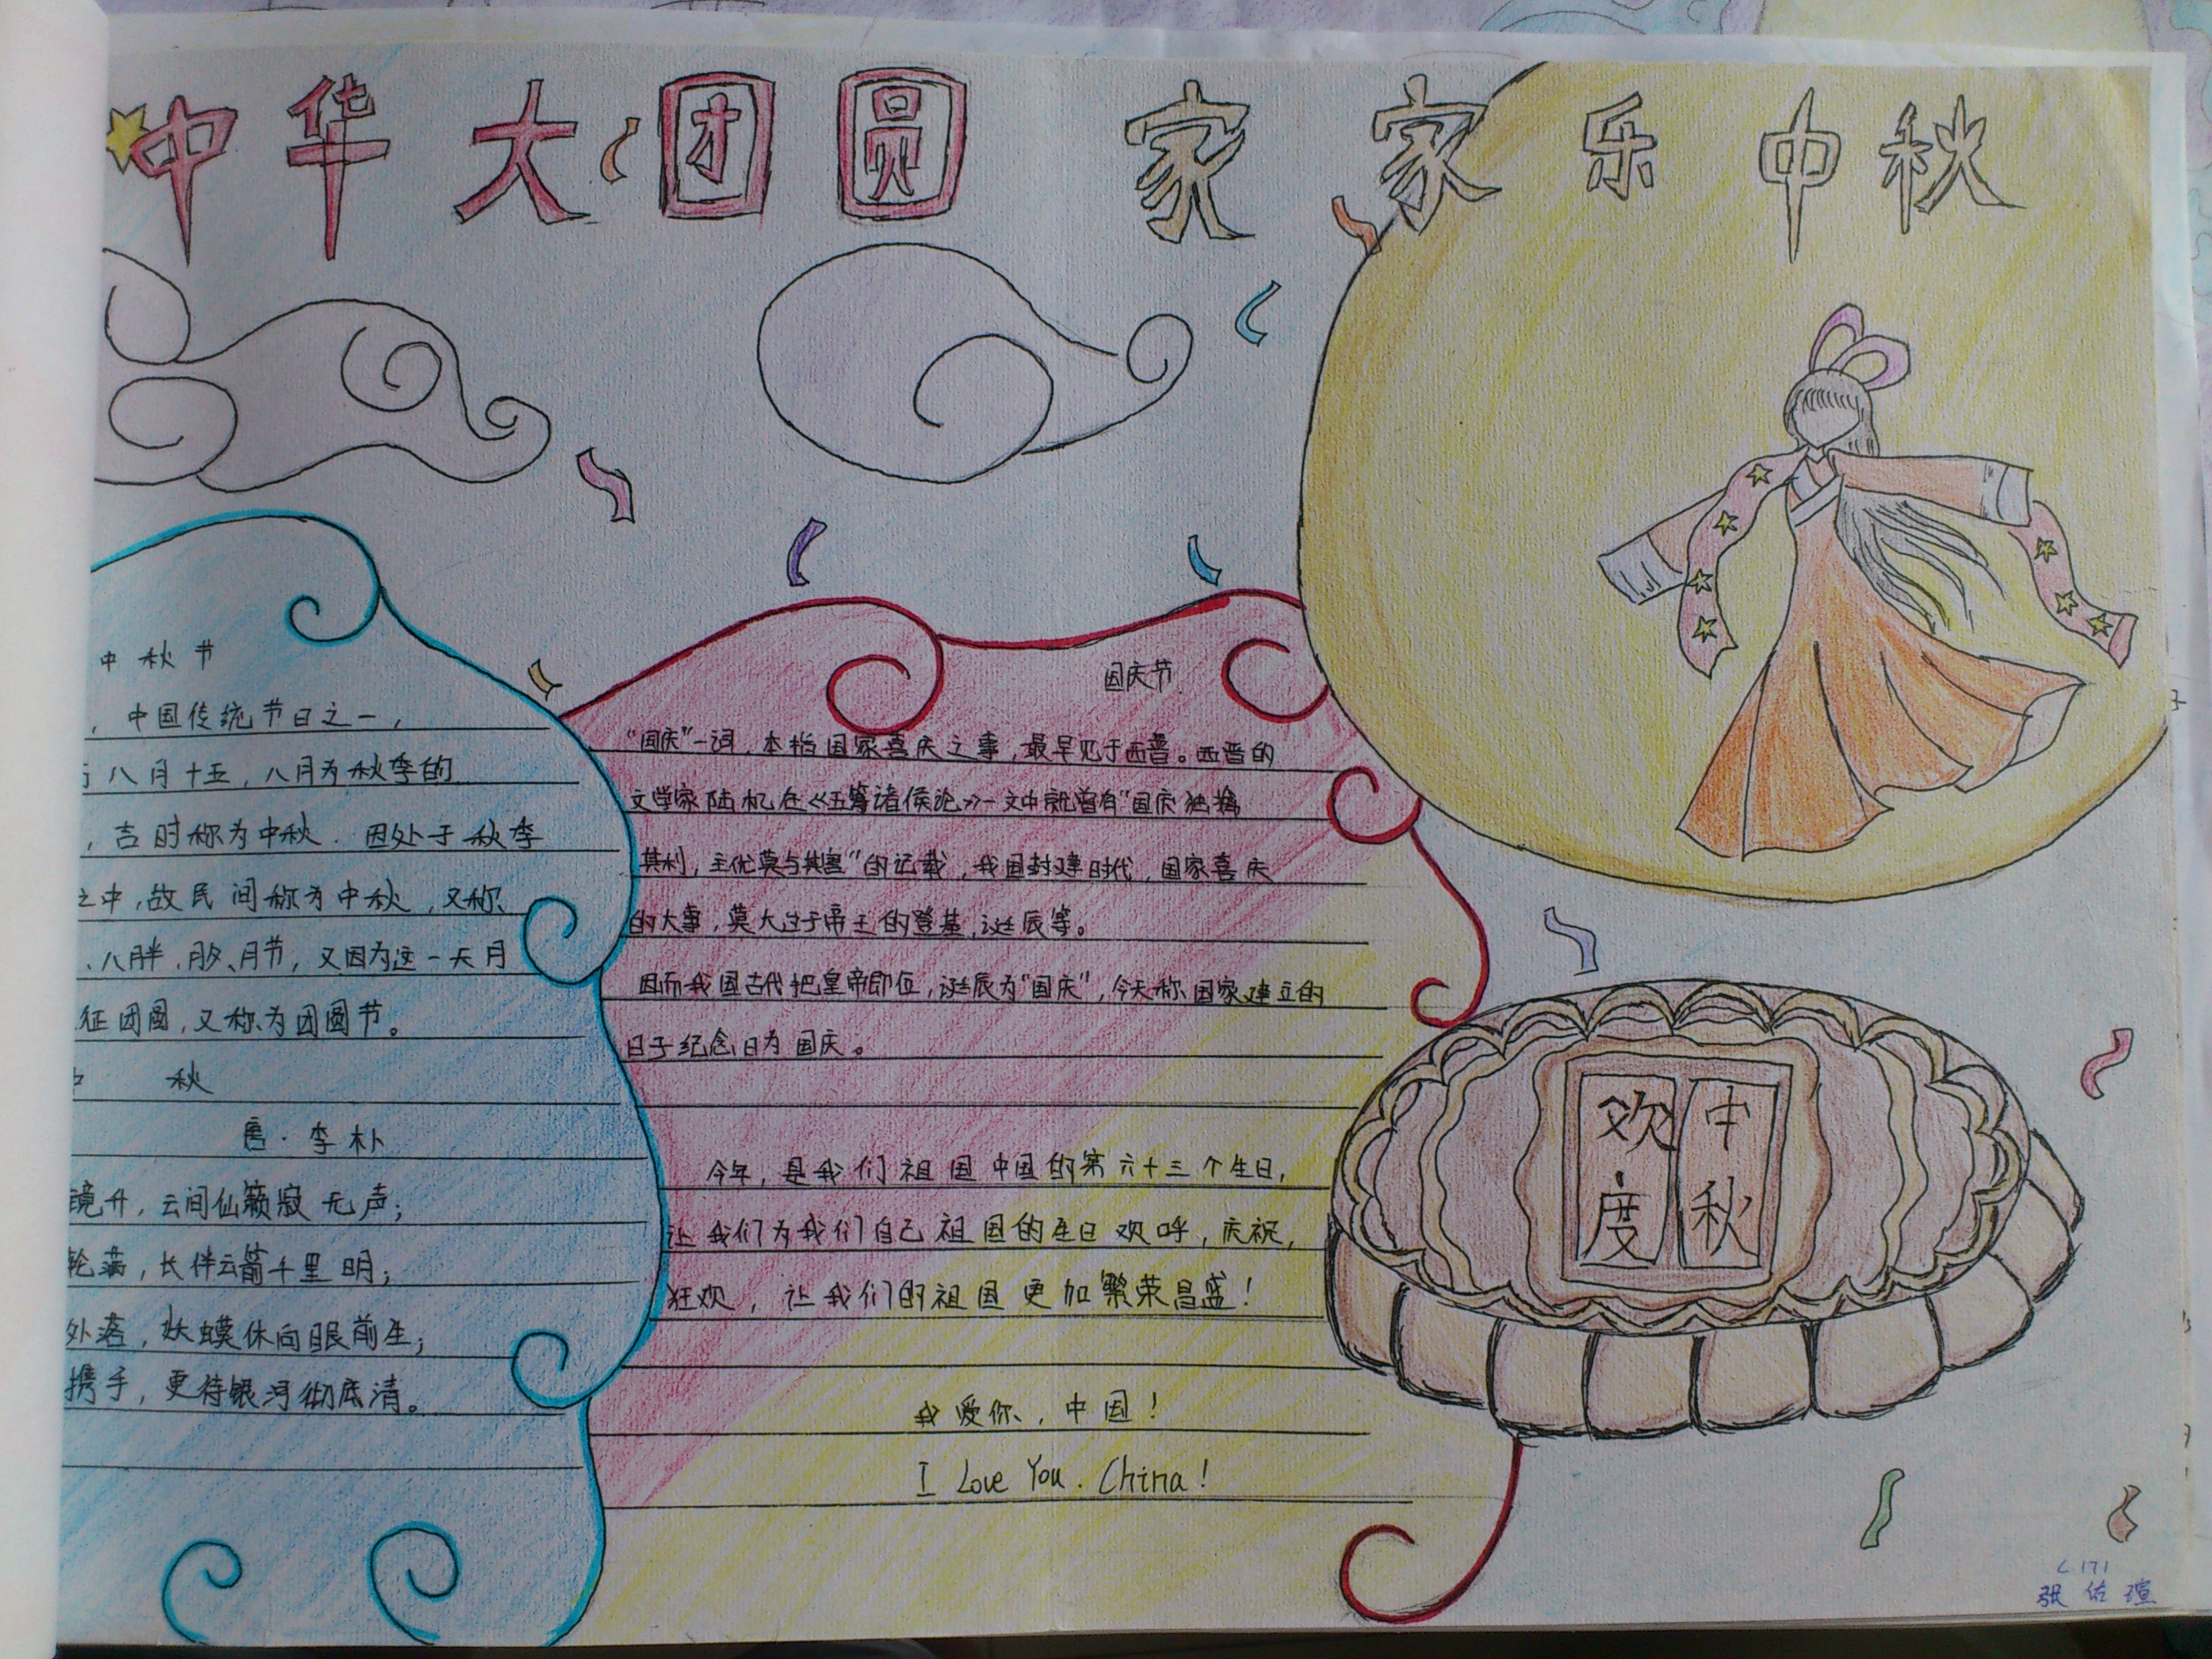 中华大团圆 家家乐中秋
中秋节
，中国传统节日之一，
八月十五，八月为秋季的
，古时称为中秋．因处于秋季
之中，故民间称为中秋，又称
、八月半、月夕、月节，又因为这一天月
征团圆，又称为团圆节。
中 秋
唐·李朴
镜升，云间仙籁寂无声；
轮满，长伴云衢千里明；
外落，妖蟆休向眼前生；
携手，更待银河彻底清。
国庆节
“国庆”一词，本指国家喜庆之事，最早见于西晋。西晋的
文学家陆机在《五等诸侯论》一文中就曾有“国庆独飨
其利，主忧莫与其害”的记载，我国封建时代，国家喜庆
的大事，莫大过于帝王的登基，诞辰等。
因而我国古代把皇帝即位，诞辰为“国庆”，今天称国家建立的
日子纪念日为国庆。
今年，是我们祖国中国的第六十三个生日，
让我们为我们自己祖国的生日欢呼，庆祝，
狂欢，让我们的祖国更加繁荣昌盛！
我爱你，中国！
I Love You. China!
欢度
中秋
C171
张佑瑄